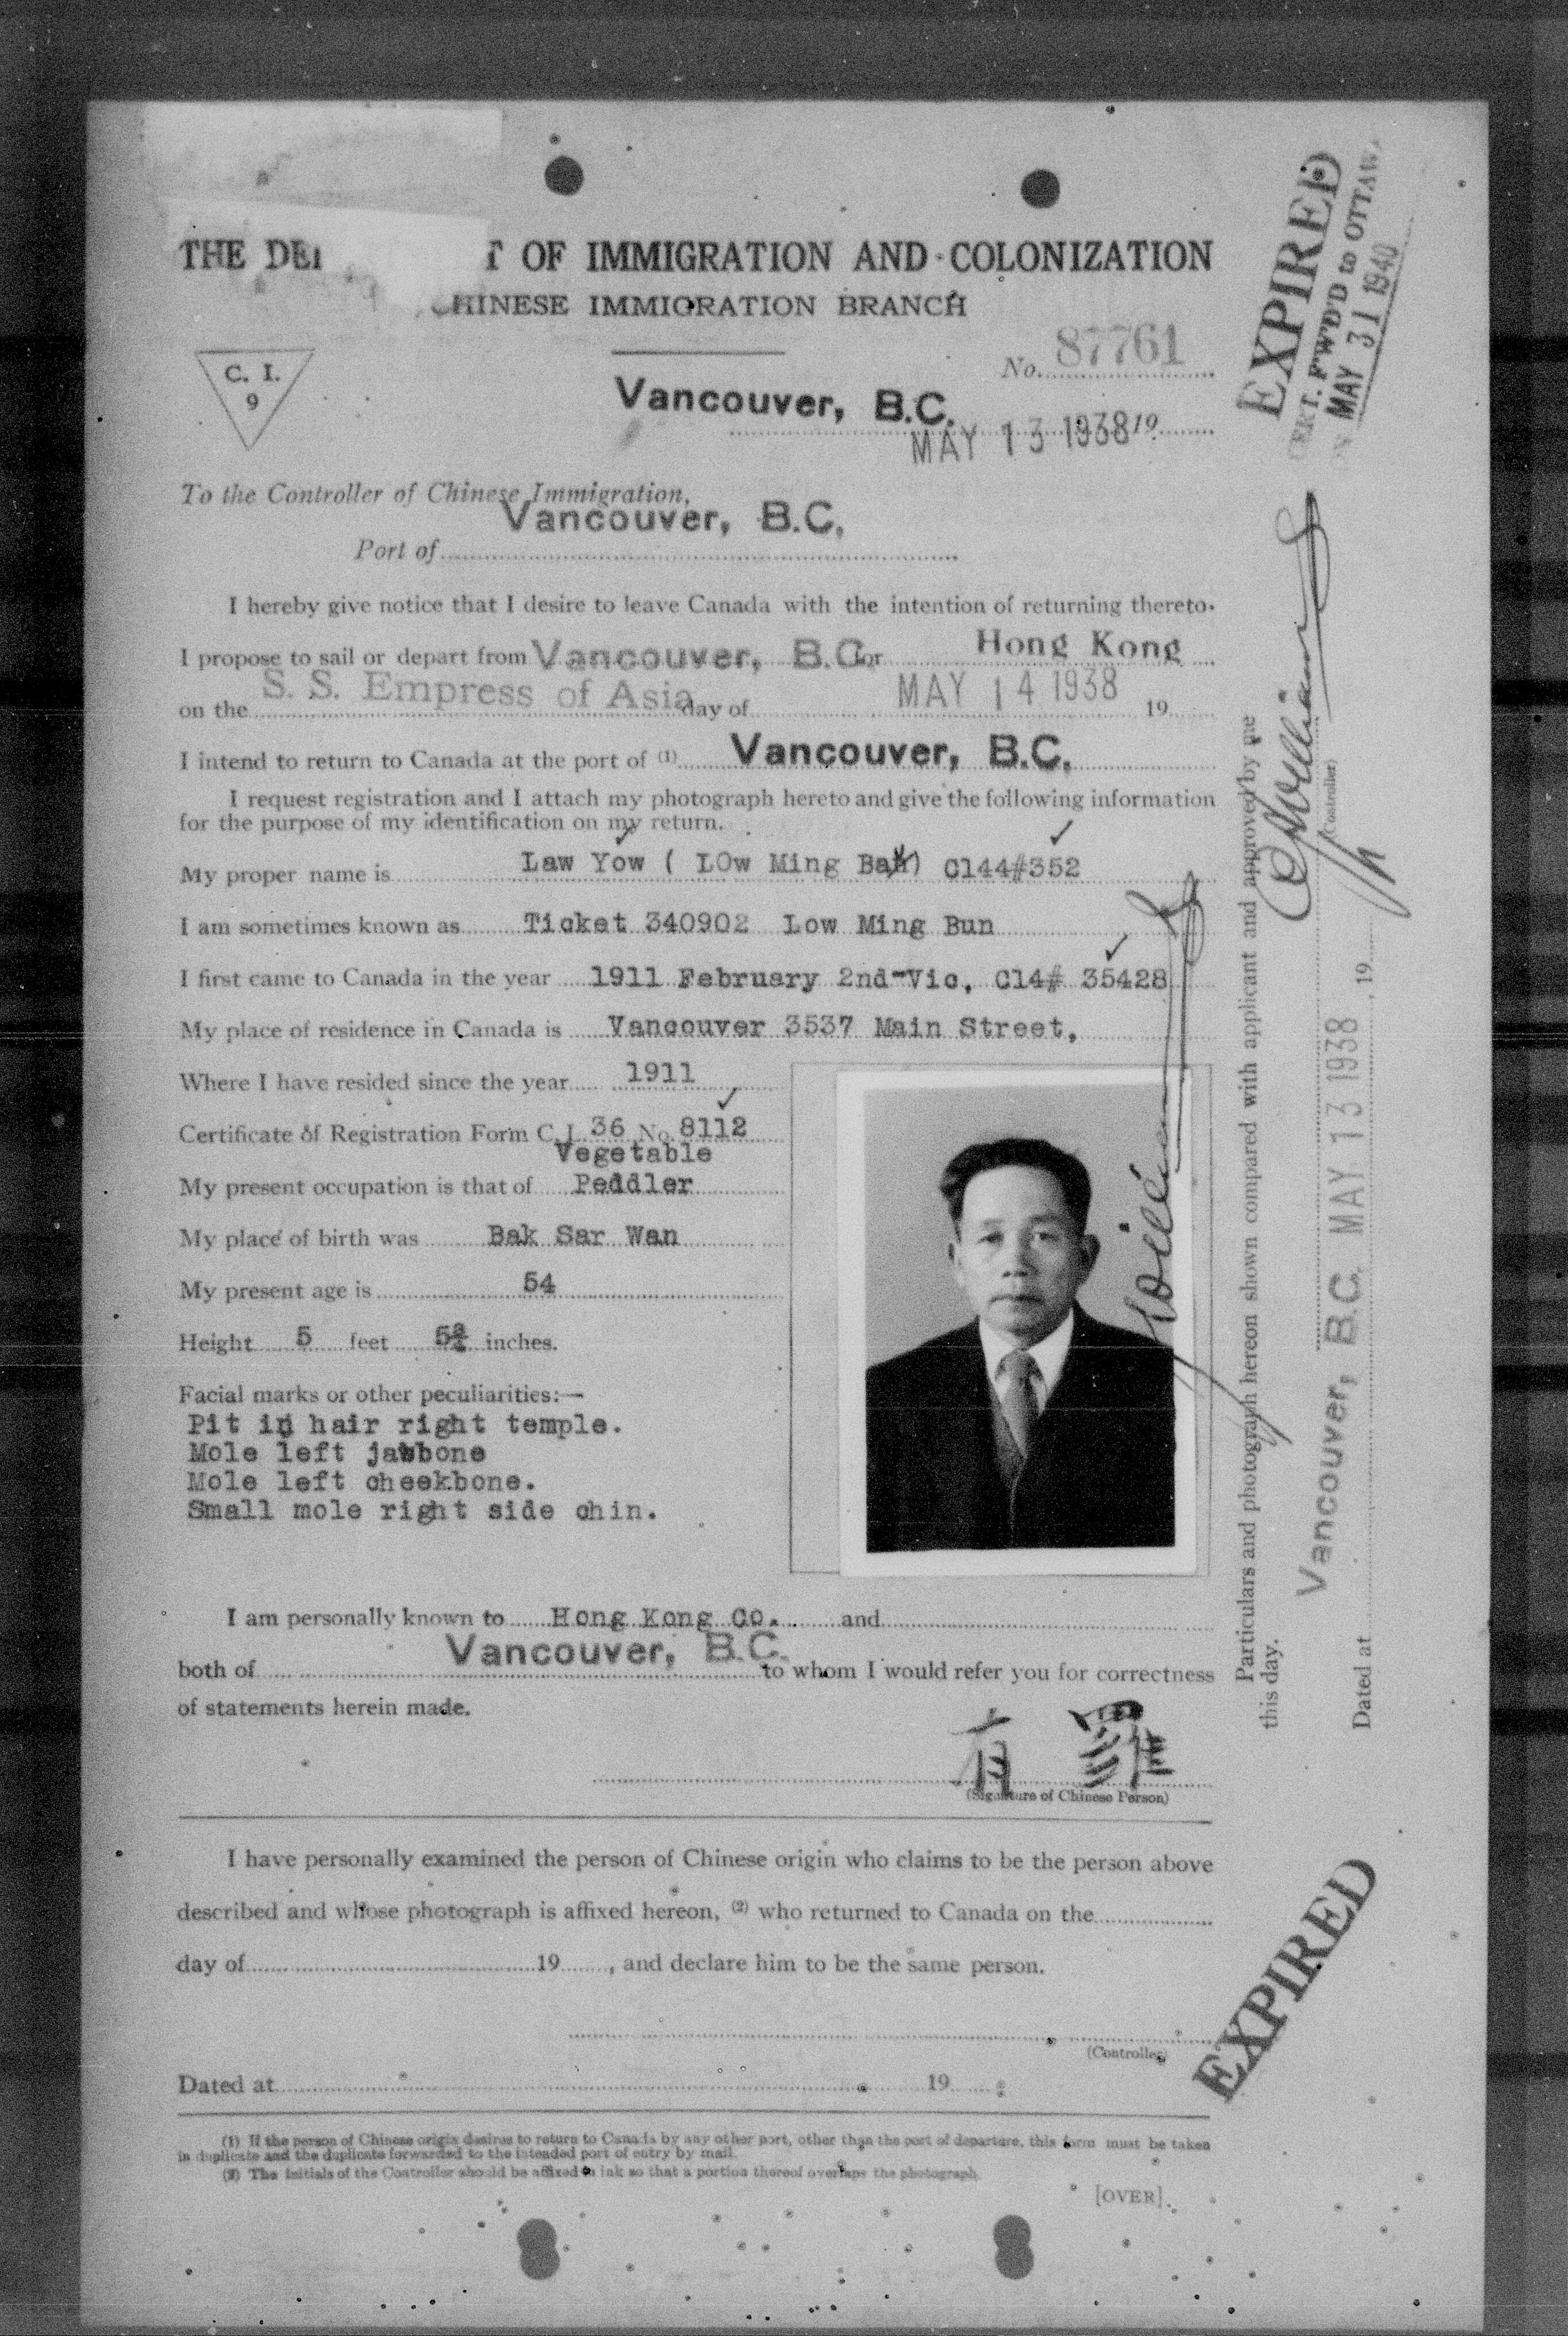 THE DE T OF IMMIGRATION AND COLONIZATION
CHINESE IMMIGRATION BRANCH
C. I.
9
No. 87761
Vancouver, B.C.
MAY 13 1938 19
To the Controller of Chinese Immigration,
Vancouver, B.C.
Port of
I hereby give notice that I desire to leave Canada with the intention of returning thereto.
I propose to sail or depart from Vancouver, B.C. for Hong Kong
on the S. S. Empress of Asia day of MAY 14 1938 19
I intend to return to Canada at the port of (1) Vancouver, B.C.
I request registration and I attach my photograph hereto and give the following information
for the purpose of my identification on my return.
My proper name is Law Yow ( LOw Ming ) C144#352
I am sometimes known as Ticket 340902 Low Ming Bun
I first came to Canada in the year 1911 February 2nd-Vic, C14# 35428
My place of residence in Canada is Vancouver 3537 Main Street,
Where I have resided since the year 1911
Certificate of Registration Form C.I. 36 No. 8112
Vegetable
My present occupation is that of Peddler
My place of birth was Bak Sar Wan
My present age is 54
Height 5 feet 5¾ inches.
Facial marks or other peculiarities:—
Pit in hair right temple.
Mole left jawbone
Mole left cheekbone.
Small mole right side chin.
I am personally known to Hong Kong Co. and
Vancouver, B.C.
both of to whom I would refer you for correctness
of statements herein made.
有 羅
(Signature of Chinese Person)
I have personally examined the person of Chinese origin who claims to be the person above
described and whose photograph is affixed hereon, (2) who returned to Canada on the
day of 19 , and declare him to be the same person.
(Controller)
Dated at 19
(1) If the person of Chinese origin desires to return to Canada by any other port, other than the port of departure, this form must be taken
in duplicate and the duplicate forwarded to the intended port of entry by mail.
(2) The initials of the Controller should be affixed in ink so that a portion thereof overlaps the photograph.
[OVER]
EXPIRED
CERT. FW'D'D to OTTAWA
ON MAY 31 1940
Particulars and photograph hereon shown compared with applicant and approved by me
this day.
(Controller)
Vancouver, B.C. MAY 13 1938
Dated at , 19
EXPIRED